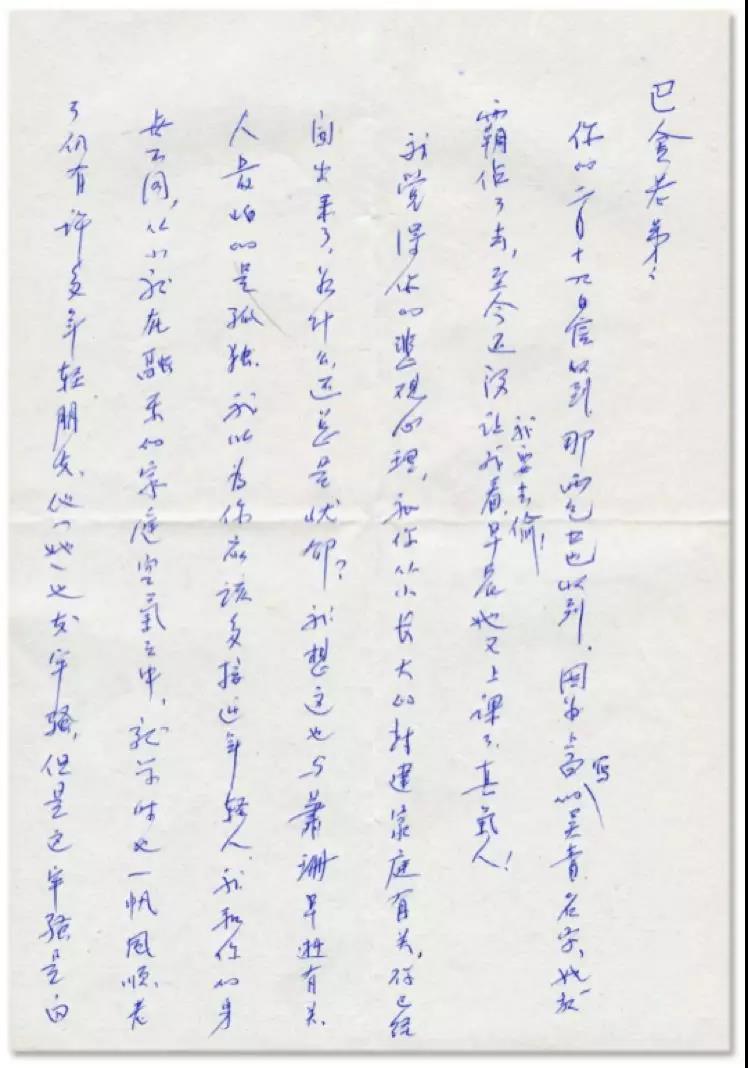 巴金老弟：
你的二月十日信收到，那两包书也收到，因为上面写的吴青名字，她就
霸佔了去，至今还没让我看，我要去偷！早晨她又上课了，真氣人！
我觉得你的悲观心理，和你从小长大的封建家庭有关，你已经
闯出来了，为什么还总是忧郁？我想这也与萧珊早逝有关.
人最怕的是孤独，我以为你应该多接近年轻人，我和你的身
世不同，从小就在融柔的家庭空氣之中，就学时也一帆风顺.老
了仍有许多年轻朋友，他们她们也发牢骚，但是这牢骚是向